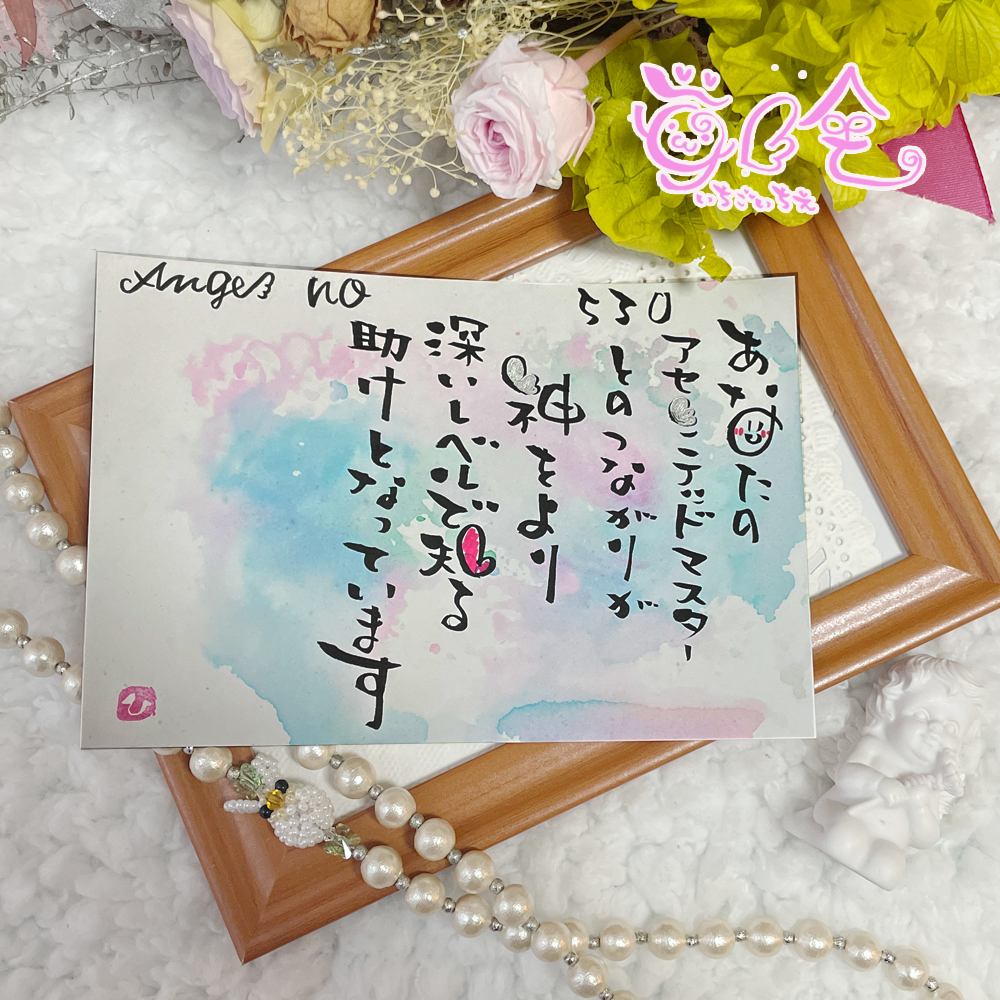 Angel no
530
あなたの
アセンデッドマスター
とのつながりが
神をより
深いレベルで知る
助けとなっています
いちごいちえ